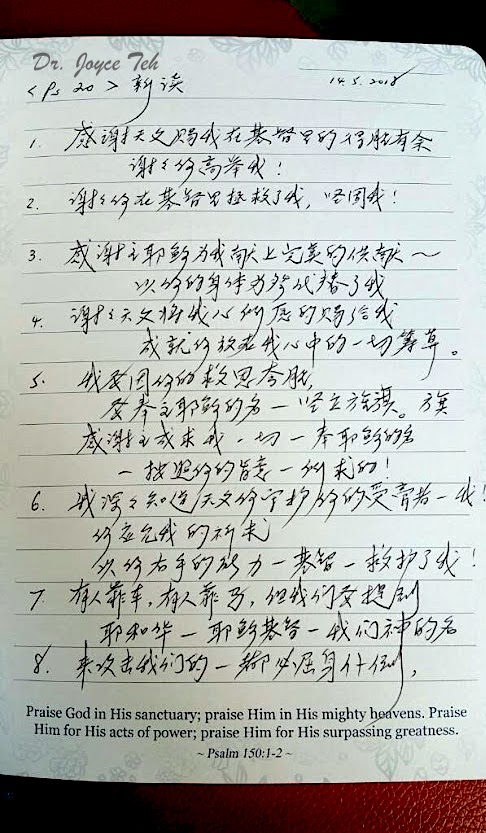 Dr. Joyce Teh
<Ps 20> 新读 14.5.2018
1. 感谢天父赐我在基督里的得胜有余
谢谢你高举我!
2. 谢谢你在基督里拯救了我,坚固我!
3. 感谢主耶稣为我献上完美的供献~
以你的身体为我代替了我
4. 谢谢天父将我心所愿的赐给我
成就你放在我心中的一切筹算。
5. 我要因你的救恩夸胜,
要奉主耶稣的名一竖立旌旗。旗
感谢主成求我一切一奉耶稣的名
一按照你的旨意一所求的!
6. 我深深知道天父你守护你的受膏者一我!
你应允我的祈求
以你右手的能力一基督一救护了我!
7. 有人靠车,有人靠马,但我们要提到
耶和华一耶稣基督一我们神的名
8. 来攻击我们的一都必屈身仆倒,
Praise God in His sanctuary; praise Him in His mighty heavens. Praise
Him for His acts of power; praise Him for His surpassing greatness.
~ Psalm 150:1-2 ~